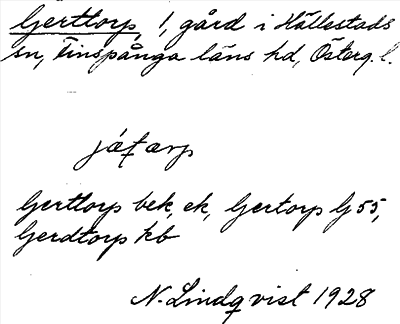 Gjerttorp, 1, gård i Hällestads
sn, Finspånga läns hd, Österg. l.
Gjerttorp bek, ek, Gjertorp Gj 55,
Gjerdtorp kb
N. Lindqvist 1928